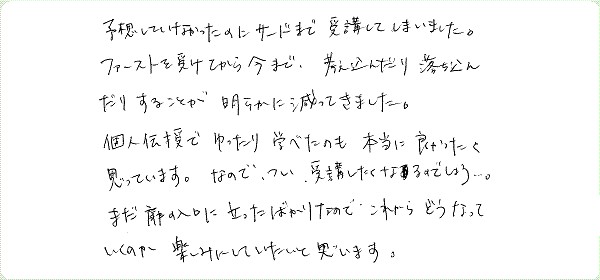 予想していなかったのにサードまで受講してしまいました。
ファーストを受けてから今まで、考え込んだり落ち込ん
だりすることが明らかに減ってきました。
個人伝授でゆったり学べたのも本当に良かったと
思っています。なので、つい、受講したくなるのでしょう…。
まだ扉の入口に立ったばかりなので、これからどうなって
いくのか楽しみにしていたいと思います。